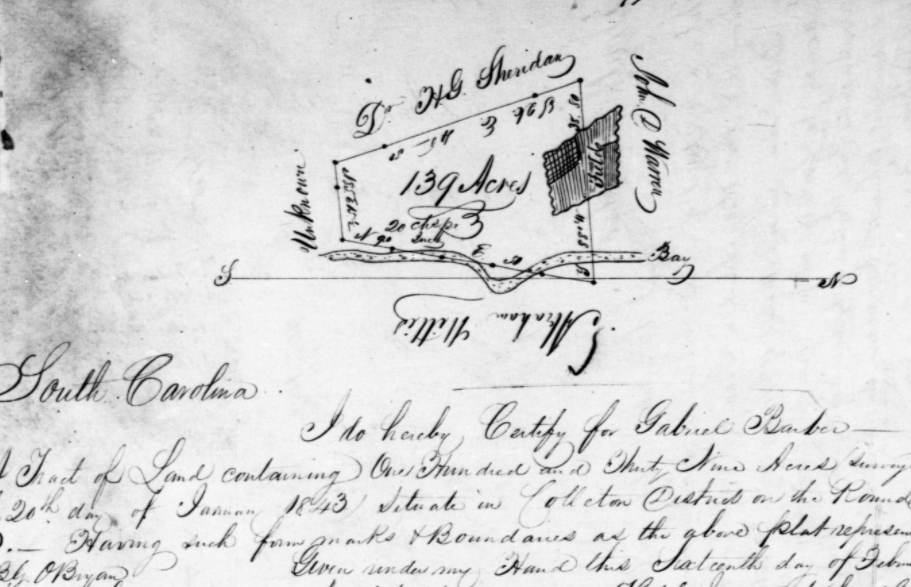 Dr. H.G. Sheridan
John C Warren
139 Acres
Field
Unknown
20 chs p.
Bay
S
N
Abraham Willis
South Carolina
I do hereby Certify for Gabriel Barber —
A Tract of Land containing One Hundred and Thirty Nine Acres Survey
20th day of January 1843 Situate in Colleton District on the Round
O. — Having such form marks & Boundaries as the above plat represen
B.G. OBryan Given under my Hand this Sixteenth day of Febru